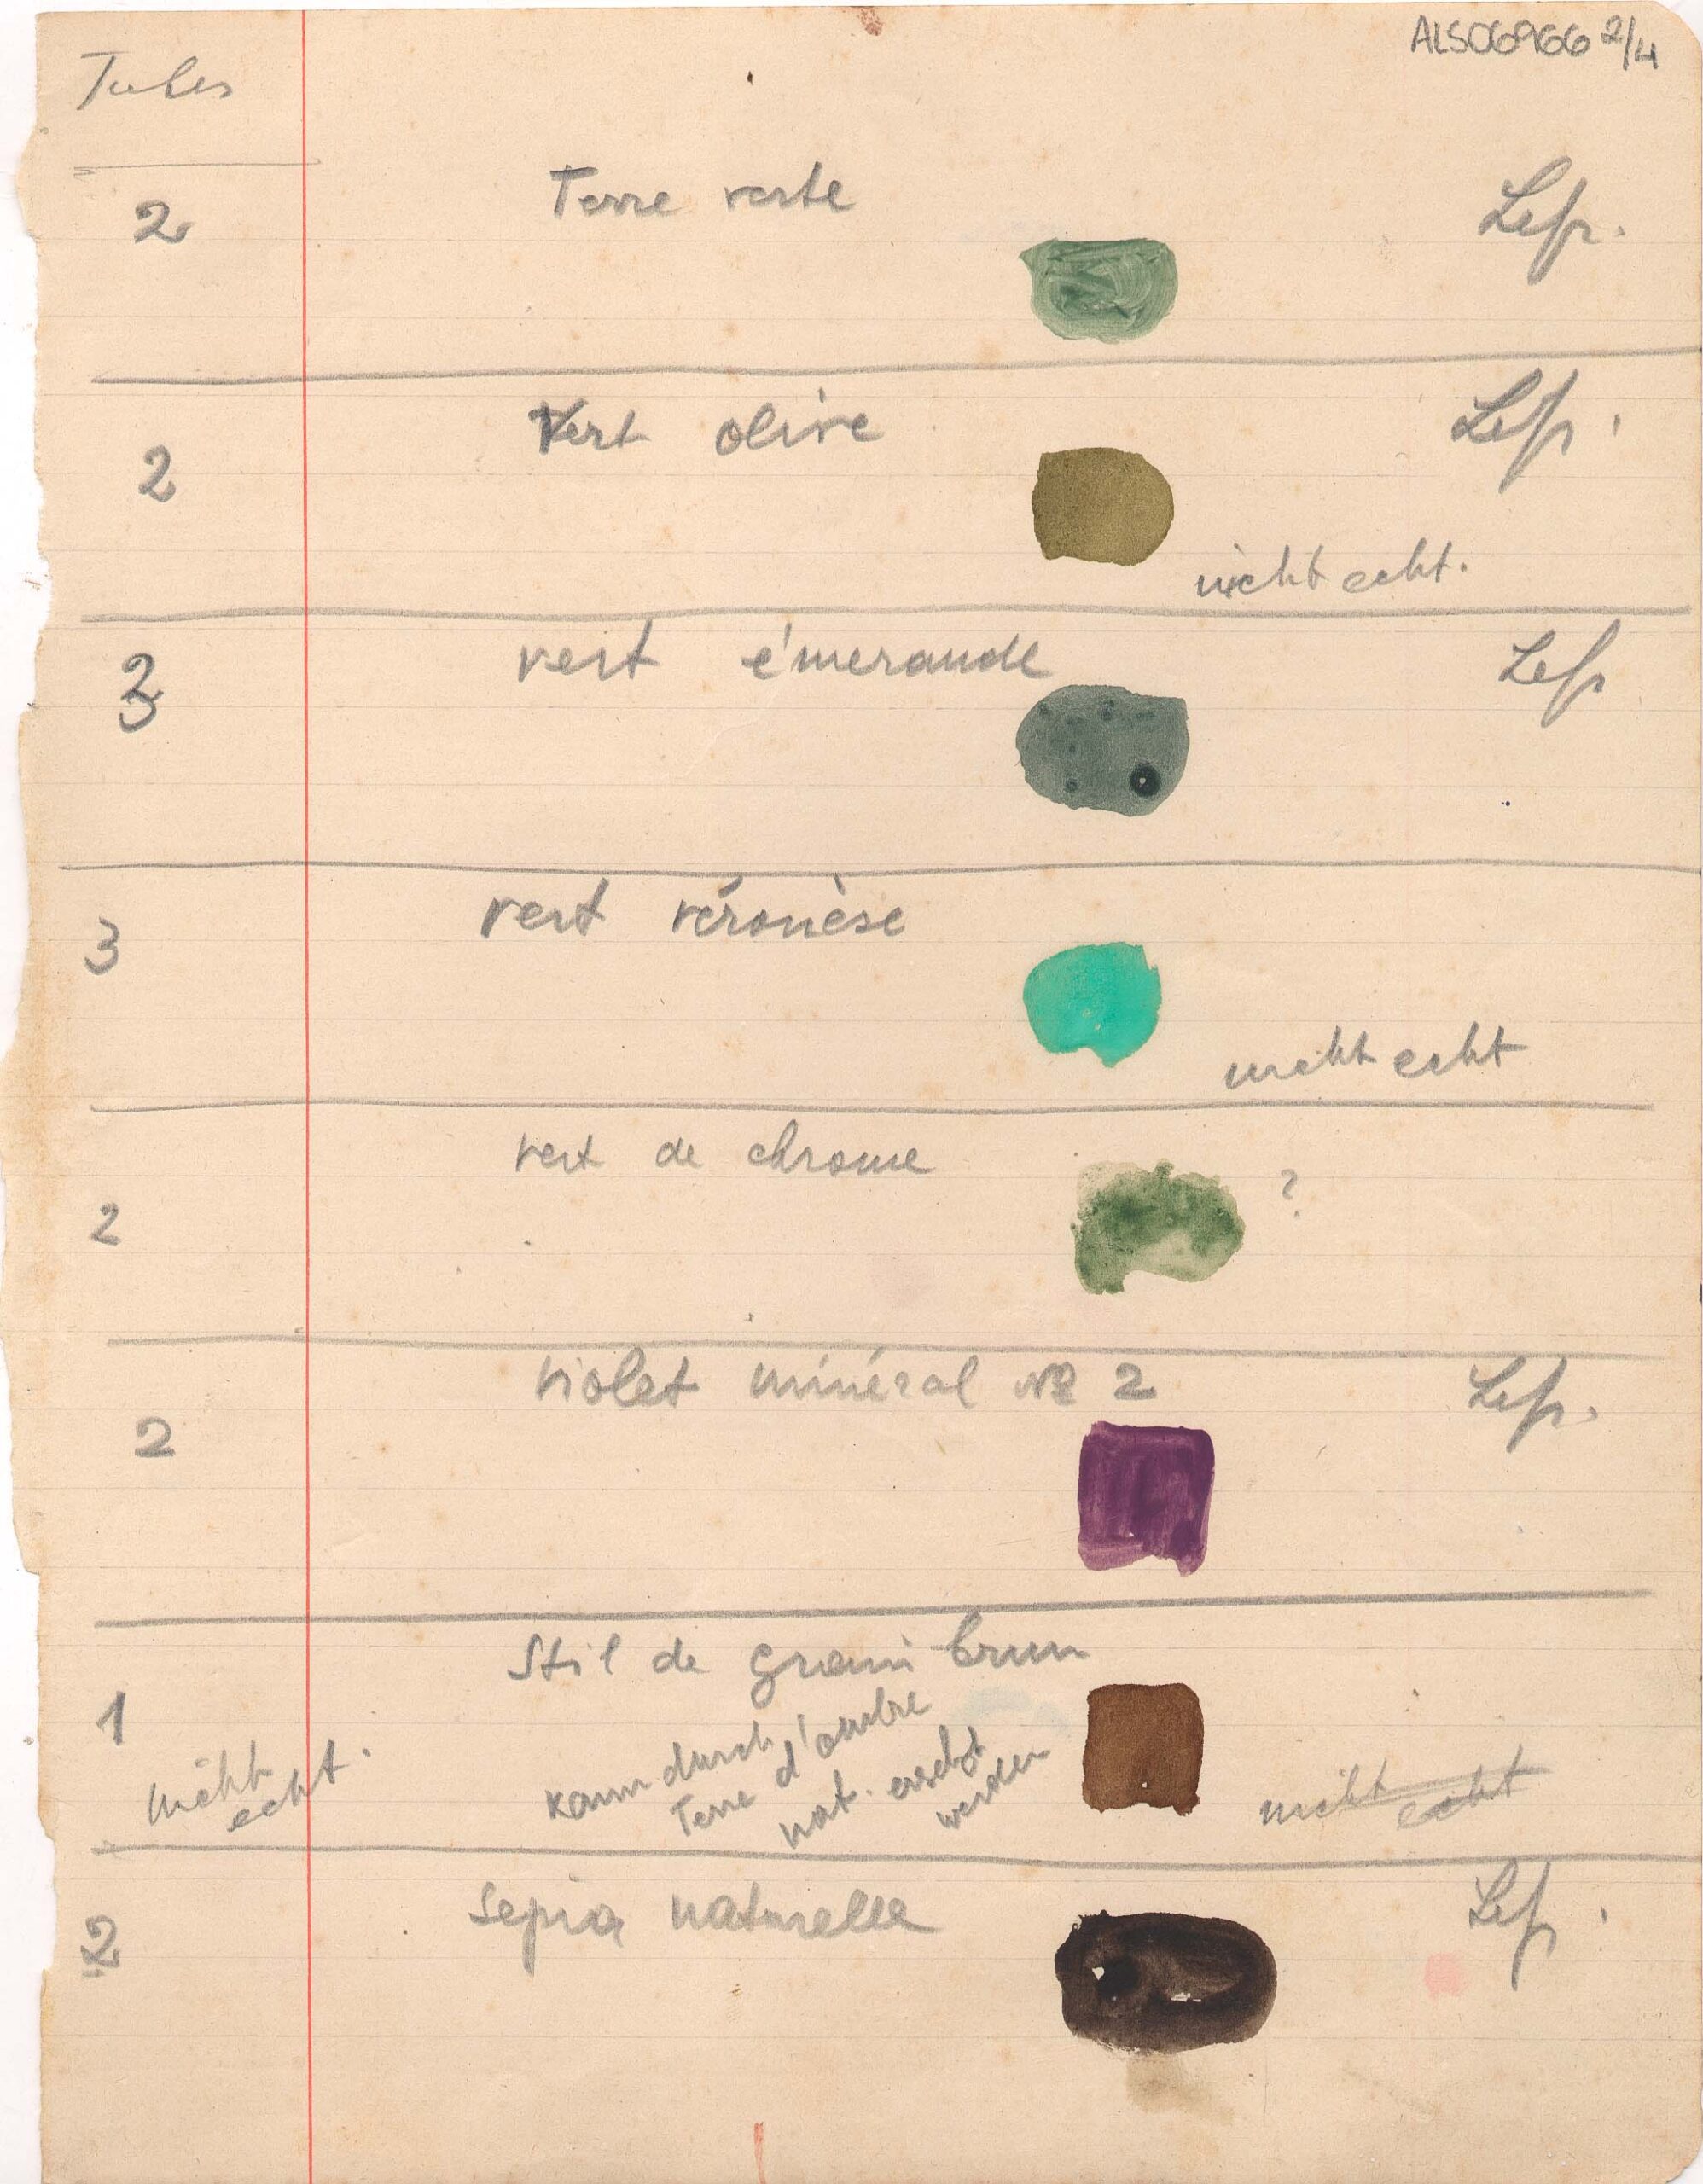 ALS06966 2/4
Tubes
2 Terre verte Lefr.
2 Vert olive Lefr.
nicht echt.
3 vert émeraude Lefr
3 vert véronèse
nicht echt
vert de chrome
2 ?
violet minéral No 2 Lefr.
2
Stil de grain brun
1
nicht
echt.
kann durch
Terre d'ombre
nat. ersetzt
werden
nicht echt
Sepia naturelle Lefr.
2